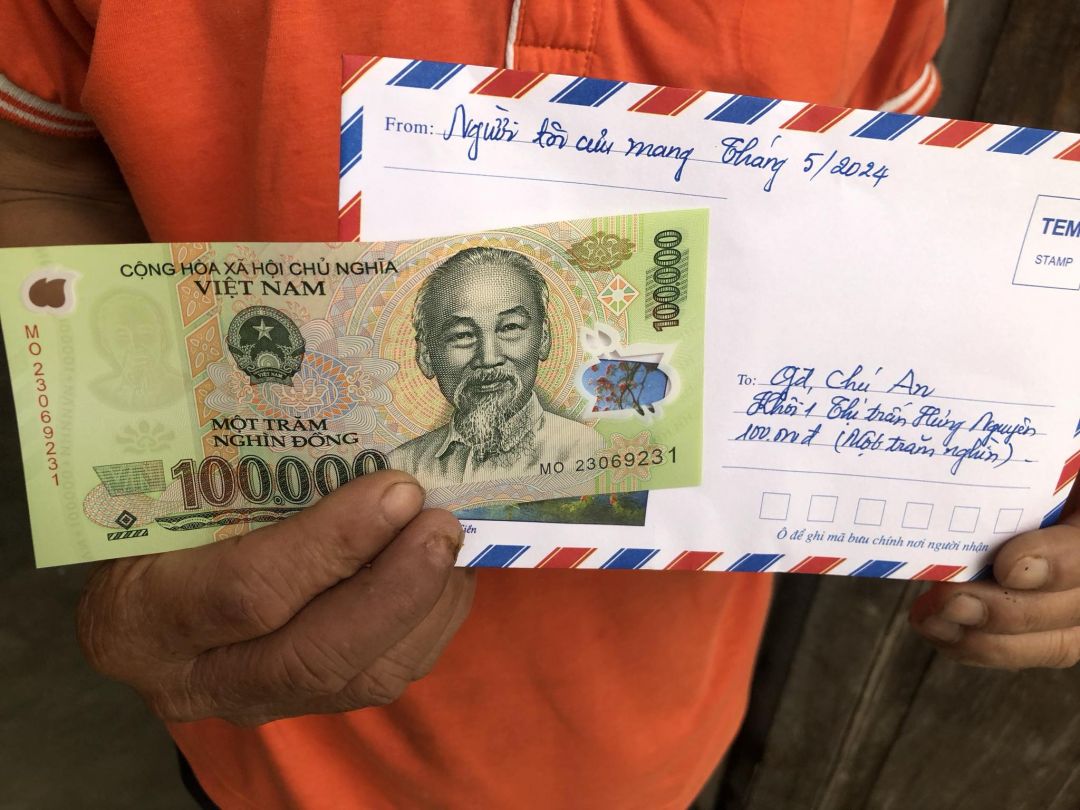 From: Người tôi cưu mang Tháng 5/2024
TEM
STAMP
CỘNG HÒA XÃ HỘI CHỦ NGHĨA
VIỆT NAM
100000
MO 23069231
MỘT TRĂM
NGHÌN ĐỒNG
100.000
MO 23069231
To: gđ, Chú An
Khối 1 Thị trấn Hưng Nguyên
100.000đ (Một trăm nghìn)
Ô để ghi mã bưu chính nơi người nhận